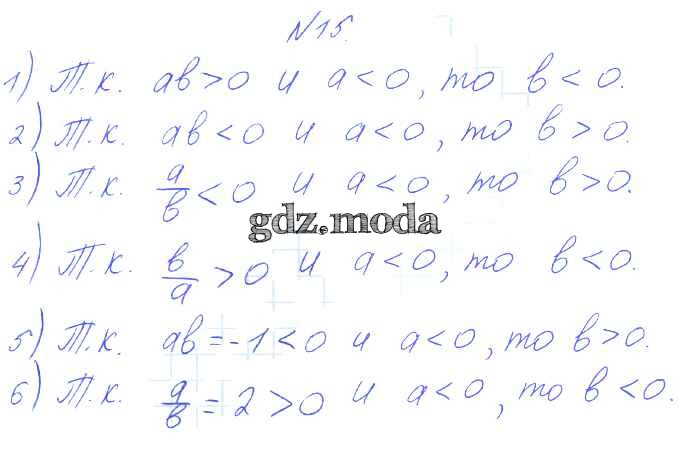 №15.
1) Т.к. ab>0 и a<0, то b<0.
2) Т.к. ab<0 и a<0, то b>0.
3) Т.к. a/b<0 и a<0, то b>0.
gdz.moda
4) Т.к. b/a>0 и a<0, то b<0.
5) Т.к. ab=-1<0 и a<0, то b>0.
6) Т.к. a/b=2>0 и a<0, то b<0.